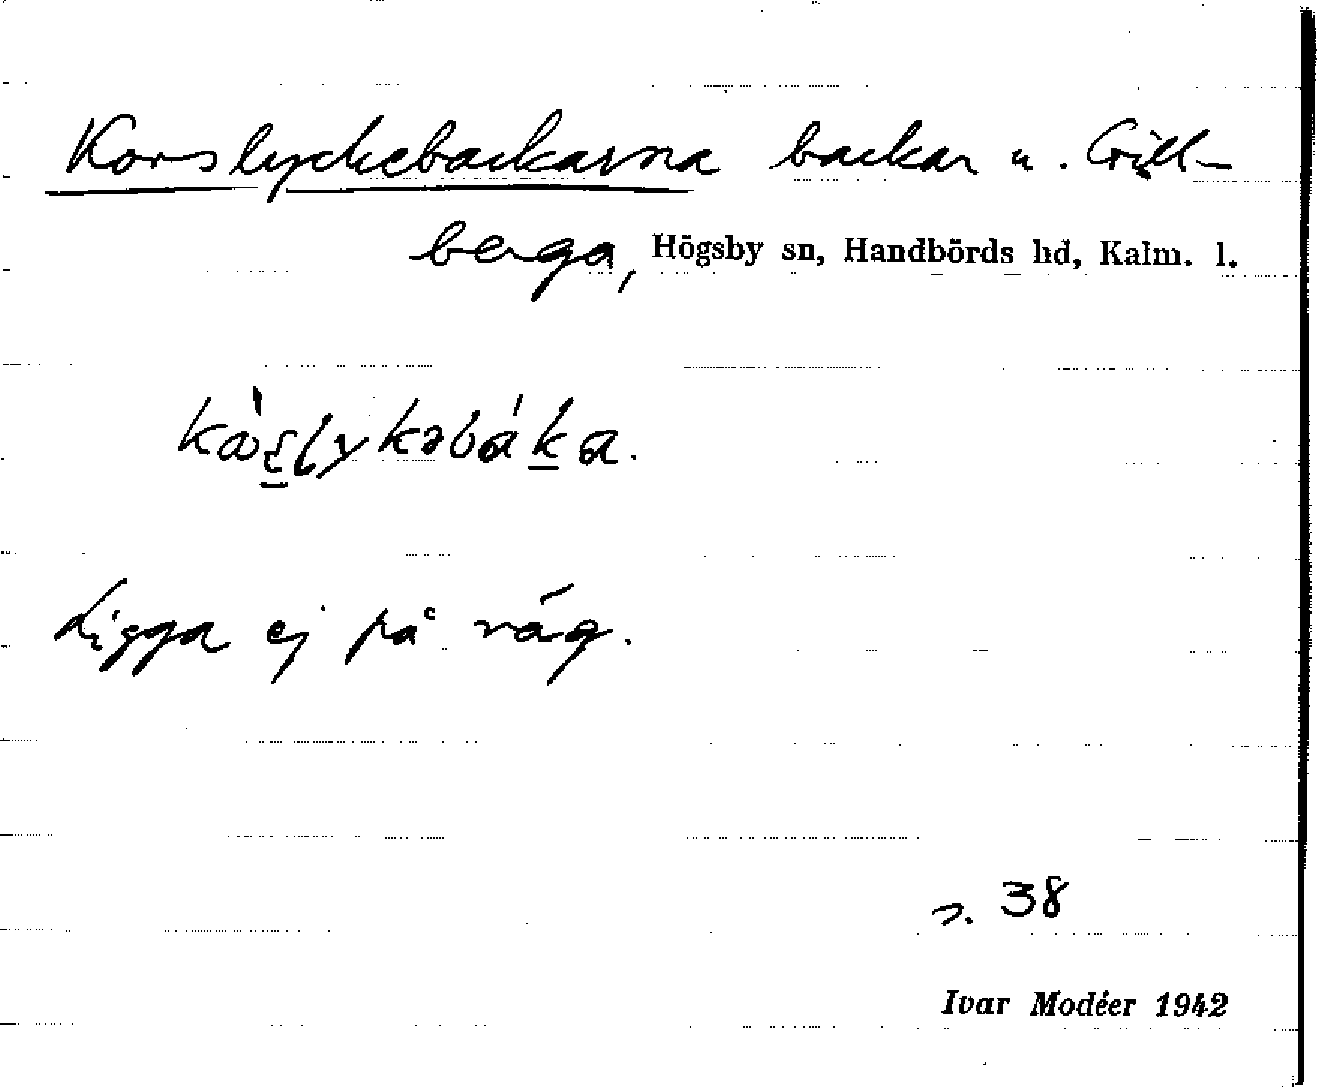 Korslyckebackarna backar u. Grill-
berga, Högsby sn, Handbörds hd, Kalm. l.
Ligga ej på väg.
s. 38
Ivar Modéer 1942